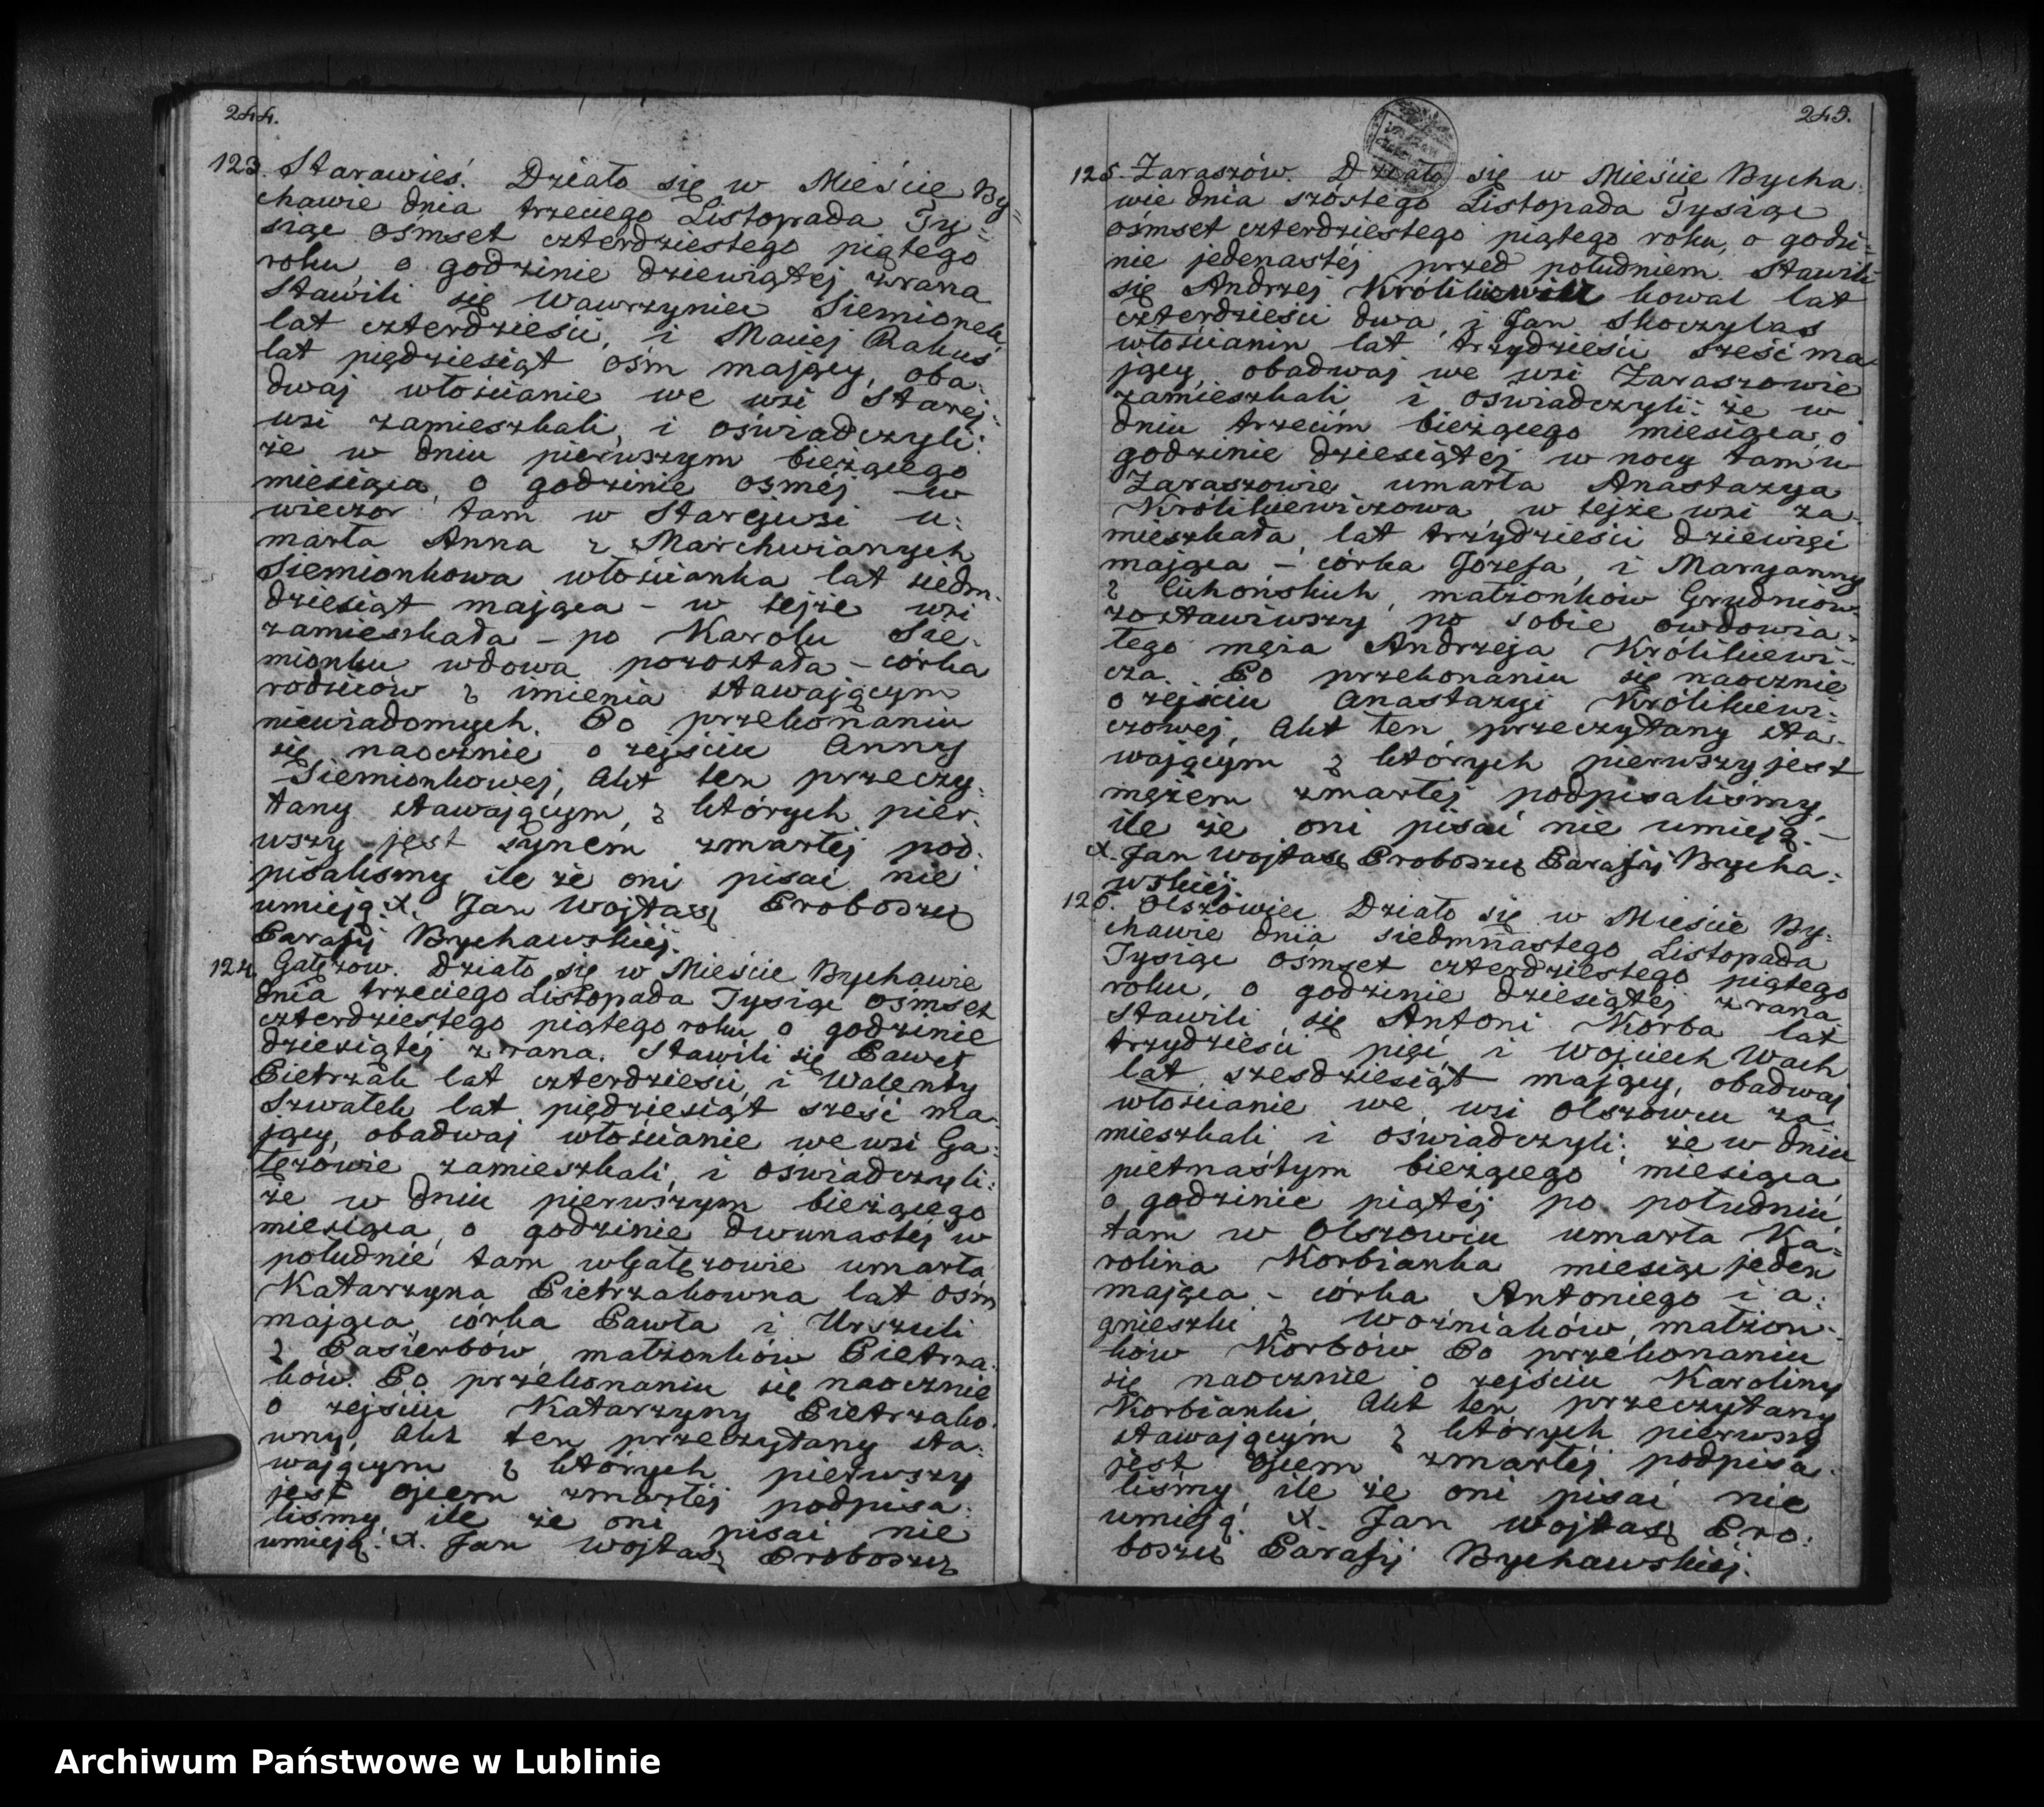 244.
123. Starawieś. Działo się w Mieście By=
chawie dnia trzeciego Listopada Ty=
siąc ośmset czterdziestego piątego
roku, o godzinie dziewiątej zrana
Stawili się Wawrzyniec Siemionek
lat czterdzieści, i Maciej Rakuś
lat pięдziesiąt ośm mający, oba=
dwaj włościanie we wsi Starej=
wsi zamieszkali, i oświadczyli:
że w dniu pierwszym bieżącego
miesiąca, o godzinie ósmej w
wieczor tam w Starejwsi u=
marła Anna z Marchwianych
Siemionkowa włościanka lat siedm=
dziesiąt mająca – w tejże wsi
zamieszkała – po Karolu Sie=
mionku wdowa pozostała – córka
rodziców z imienia stawającym
niewiadomych. Po przekonaniu
się naocznie o zejściu Anny
Siemionkowej, Akt ten przeczy=
tany stawającym, z których pier=
wszy jest synem zmarłej pod=
pisaliśmy ile że oni pisać nie
umieją. X. Jan Wojtasz Proboszcz
Parafij Bychawskiej.
124. Gałęzow. Działo się w Mieście Bychawie
dnia trzeciego Listopada Tysiąc ośmset
czterdziestego piątego roku o godzinie
dziesiątej zrana. Stawili się Paweł
Pietrzak lat czterdzieści, i Walenty
Szwałek lat pięćdziesiąt sześć ma=
jący, obadwaj włościanie we wsi Ga=
łęzowie zamieszkali, i oświadczyli:
że w dniu pierwszym bieżącego
miesiąca, o godzinie dwunastej w
południe tam w Gałęzowie umarła
Katarzyna Pietrzakowna lat ośm
mająca, córka Pawła i Urszuli
z Pasierbów małżonków Pietrza=
ków. Po przekonaniu się naocznie
o zejściu Katarzyny Pietrzako=
wny, Akt ten przeczytany sta=
wającym z których pierwszy
jest ojcem zmarłej podpisa=
liśmy ile że oni pisać nie
umieją. X. Jan Wojtasz Proboszcz
245.
125. Zaraszów. Działo się w Mieście Bycha=
wie dnia szóstego Listopada Tysiąc
ośmset czterdziestego piątego roku, o godzi=
nie jedenastej przed południem. Stawili
się Andrzej Królikiewicz kowal lat
czterdzieści dwa, i Jan Skoczylas
włościanin lat trzydzieści sześć ma=
jący, obadwaj we wsi Zaraszowie
zamieszkali i oświadczyli: że w
dniu trzecim bieżącego miesiąca, o
godzinie dziesiątej w nocy tam w
Zaraszowie umarła Anastazya
Królikiewiczowa, w tejże wsi za=
mieszkała, lat trzydzieści dziewięć
mająca – córka Józefa, i Maryanny
z Cichońskich, małżonków Grudniów
zostawiwszy po sobie owdowia=
łego męża Andrzeja Królikiewi=
cza. Po przekonaniu się naocznie
o zejściu Anastazyi Królikiewi=
czowej, Akt ten przeczytany sta=
wającym z których pierwszy jest
mężem zmarłej podpisaliśmy,
ile że oni pisać nie umieją. –
X. Jan Wojtasz Proboszcz Parafij Bycha=
wskiej.
126. Olszowiec. Działo się w Mieście By=
chawie dnia siedmnastego Listopada
Tysiąc ośmset czterdziestego piątego
roku, o godzinie dziesiątej zrana
Stawili się Antoni Korba lat
trzydzieści pięć i Wojciech Wach
lat szesdziesiąt mający, obadwaj
włościanie we wsi Olszowcu za=
mieszkali i oświadczyli: że w dniu
piętnastym bieżącego miesiąca
o godzinie piątej po południu,
tam w Olszowcu umarła Ka=
rolina Korbianka miesiąc jeden
mająca – córka Antoniego i A=
gnieszki z Woźniaków, małżon=
ków Korbów Po przekonaniu
się naocznie o zejściu Karoliny
Korbianki Akt ten przeczytany
stawającym z których pierwszy
jest ojcem zmarłej podpisa=
liśmy, ile że oni pisać nie
umieją. X. Jan Wojtasz Pro=
boszcz Parafij Bychawskiej.
Archiwum Państwowe w Lublinie